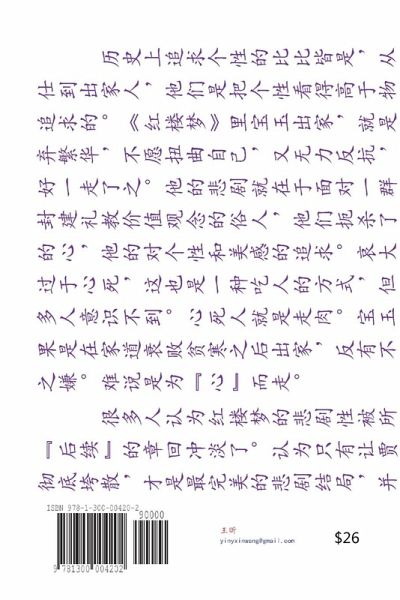 历史上追求个性的比比皆是，从
仕到出家人，他们是把个性看得高于物
追求的。《红楼梦》里宝玉出家，就是
弃繁华，不愿扭曲自己，又无力反抗，
好一走了之。他的悲剧就在于面对一群
封建礼教价值观念的俗人，他们扼杀了
的心，他的对个性和美感的追求。哀大
过于心死，这也是一种吃人的方式，但
多人意识不到。心死人就是走肉。宝玉
果是在家道衰败贫寒之后出家，反有不
之嫌。难说是为『心』而走。
很多人认为红楼梦的悲剧性被所
『后续』的章回冲淡了。认为只有让贾
彻底垮散，才是最完美的悲剧结局，并
ISBN 978-1-300-00420-2
90000
9 781300 004202
王昕
yinyxinwang@gmail.com
$26